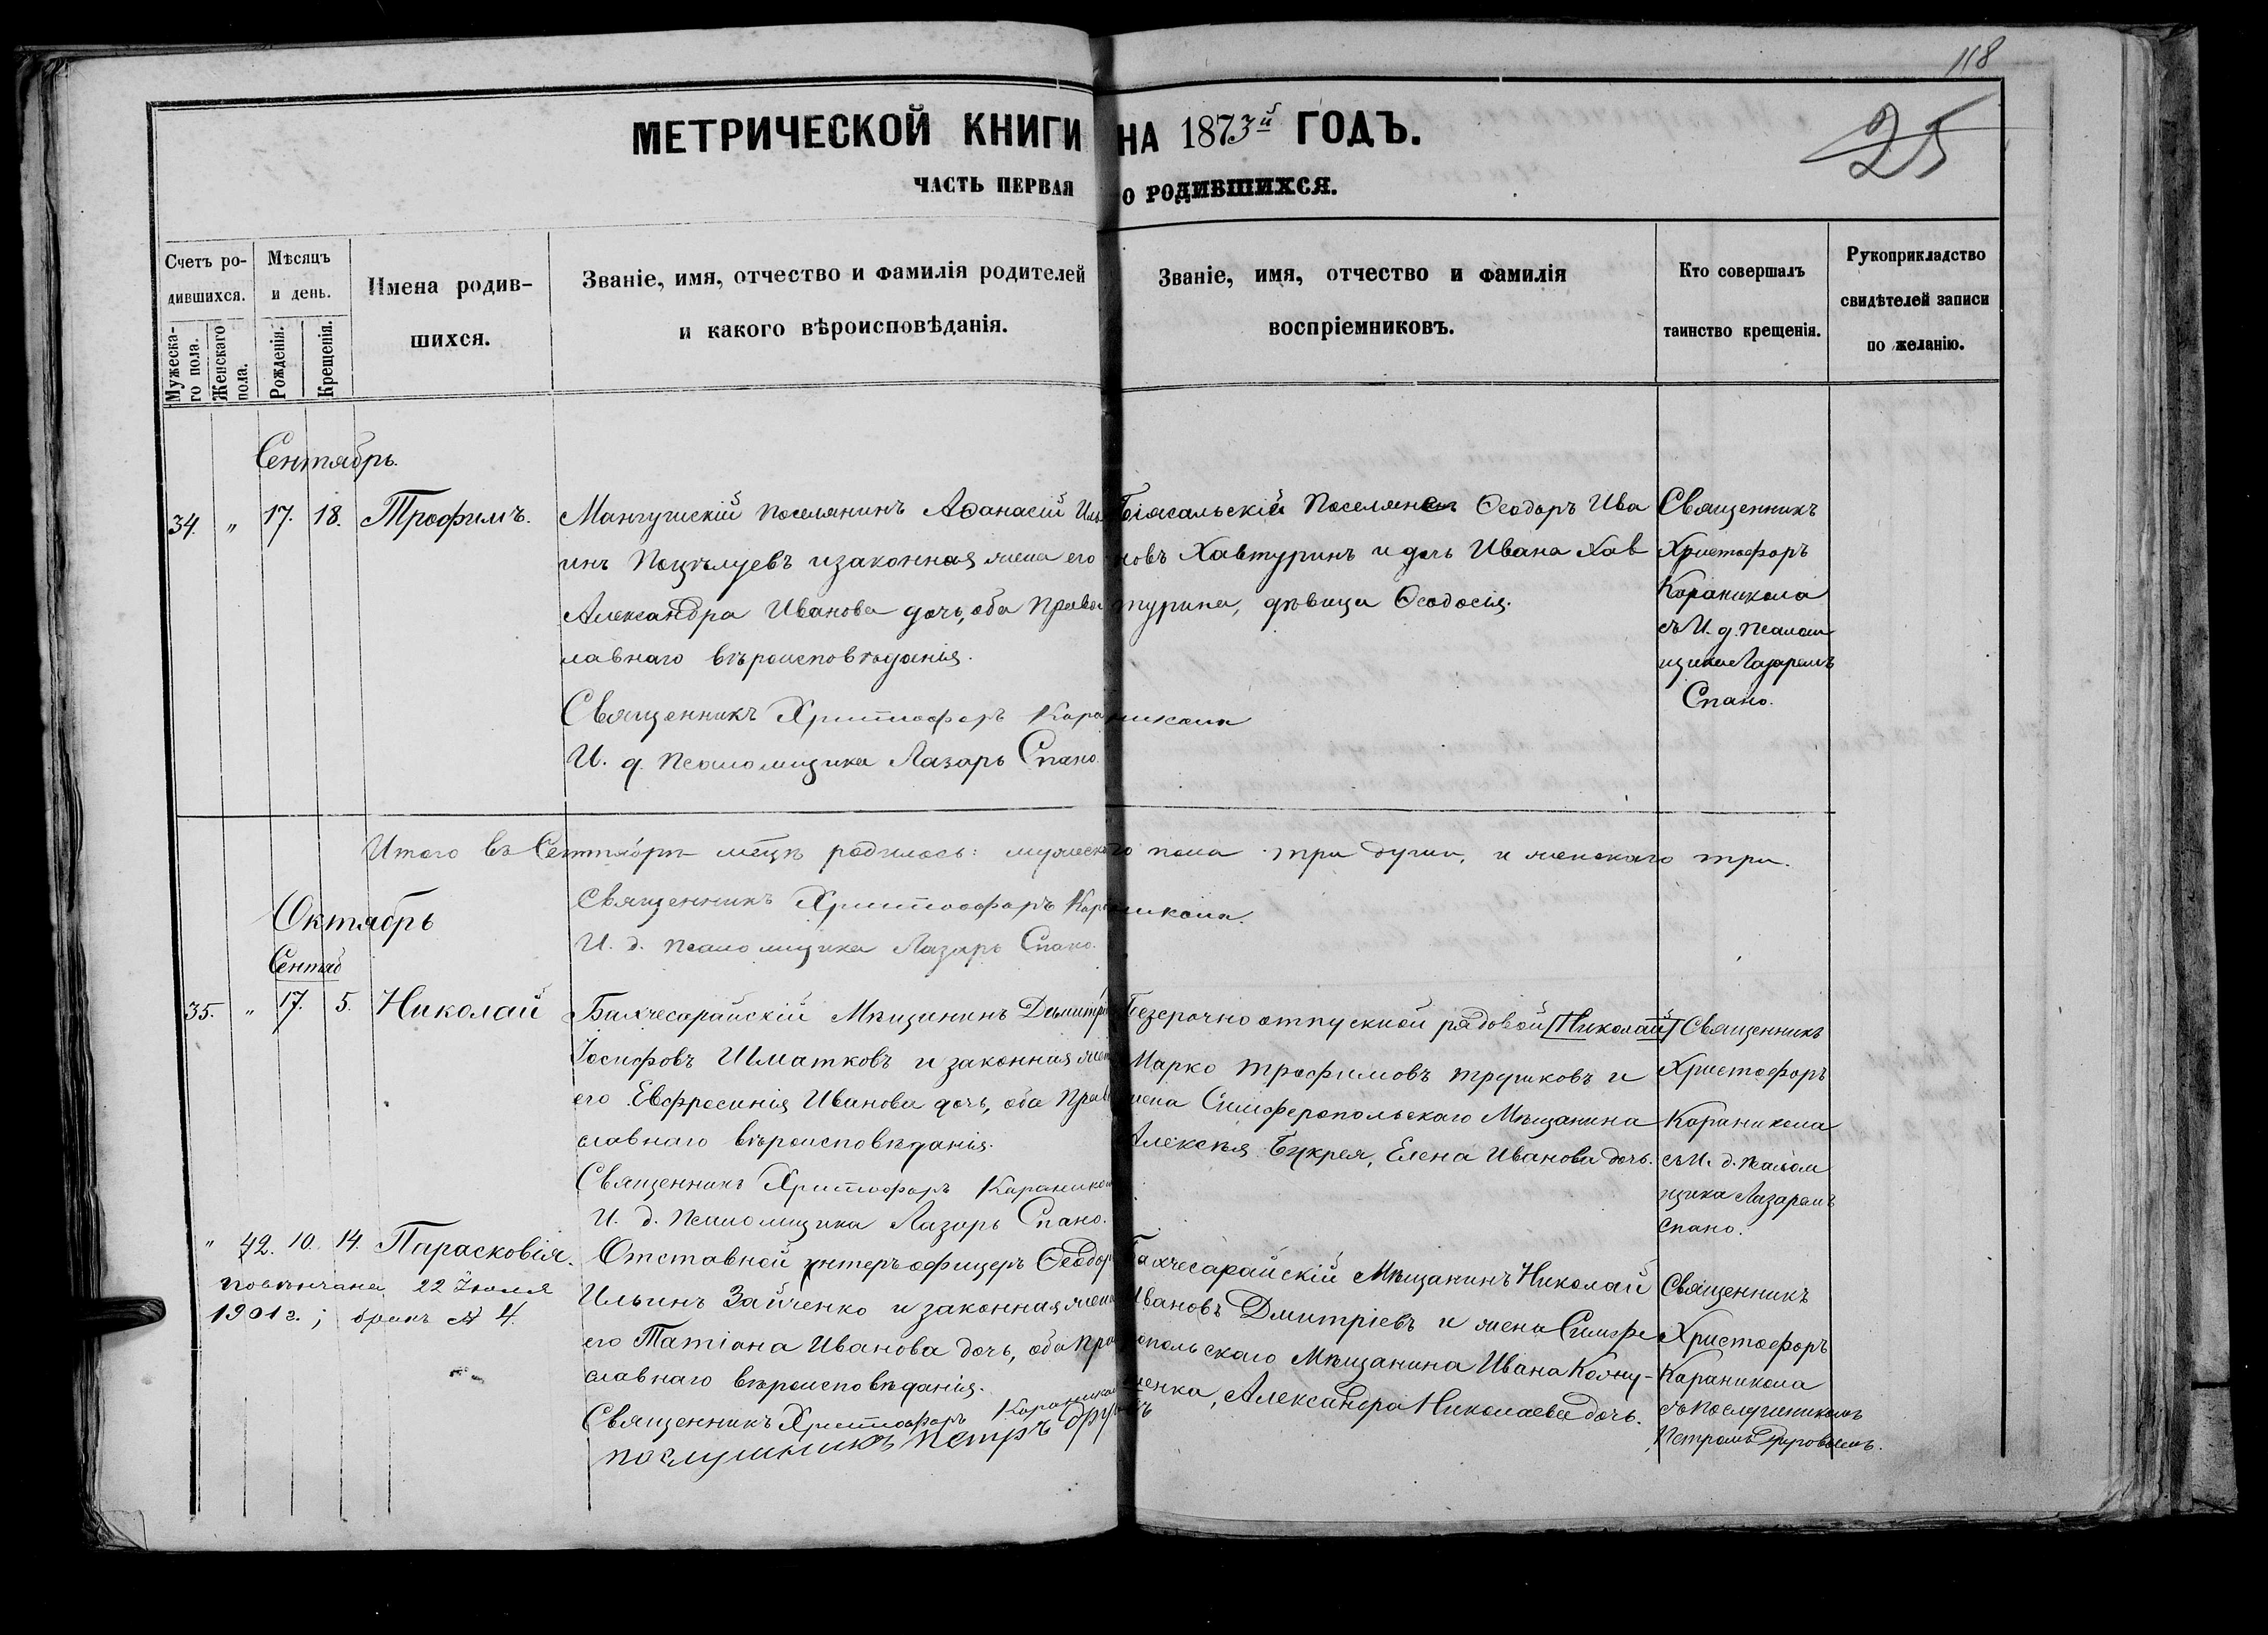 118
25
МЕТРИЧЕСКОЙ КНИГИ НА 1873й ГОДЪ.
ЧАСТЬ ПЕРВАЯ О РОДИВШИХСЯ.
Счетъ ро-
дившихся.
Мужеска-
го пола.
Женскаго
пола.
Мѣсяцъ
и день.
Рожденія.
Крещенія.
Имена родив-
шихся.
Званіе, имя, отчество и фамилія родителей
и какого вѣроисповѣданія.
Званіе, имя, отчество и фамилія
воспріемниковъ.
Кто совершалъ
таинство крещенія.
Рукоприкладство
свидѣтелей записи
по желанію.
Сентябрь.
34. " 17. 18. Трофимъ.
Мангушскій поселянинъ Аѳанасій Иль
инъ Поцѣлуевъ и законная жена его
Александра Иванова дочь, оба Правос
лавнаго вѣроисповѣданія.
Священникъ Христофоръ Караникола
И. д. Псаломщика Лазарь Спано.
Біясальскій Поселянинъ Ѳеодоръ Ива
новъ Хавтуринъ и дочь Ивана Хав
турина, дѣвица Ѳеодосія.
Священникъ
Христофоръ
Караникола
съ И. д. Псалом
щика Лазаремъ
Спано.
Итого въ Сентябрѣ мѣцѣ родилось: мужескаго пола три души, и женскаго три.
Священникъ Христофоръ Караникола.
И. д. Псаломщика Лазарь Спано.
Октябрь
Сентяб
35. " 17. 5. Николай
Бахчесарайскій Мѣщанинъ Димитрій
Іосифовъ Шматковъ и законная жена
его Евфросинія Иванова дочь, оба Право
славнаго вѣроисповѣданія.
Священникъ Христофоръ Караникола
И. д. Псаломщика Лазарь Спано.
Безсрочно отпускной рядовой [Николай]
Марко Трофимовъ и
жена Симферопольскаго Мѣщанина
Алексѣя Букрея, Елена Иванова дочь.
Священникъ
Христофоръ
Караникола
съ И. д. Псалом
щика Лазаремъ
Спано.
" 42. 10. 14. Парасковія.
повѣнчана 22 Іюля
1901 г.; бракъ № 4.
Отставной унтеръ офицеръ Ѳеодоръ
Ильинъ Зайченко и законная жена
его Татіана Иванова дочь, оба Пра
славнаго вѣроисповѣданія.
Священникъ Христофоръ Караникола
послушникъ Петръ
Бахчесарайскій Мѣщанинъ Николай
Ивановъ Дмитріевъ и жена Симфе
ропольскаго Мѣщанина Ивана
Александра Николаева дочь.
Священникъ
Христофоръ
Караникола
съ послушникомъ
Петромъ